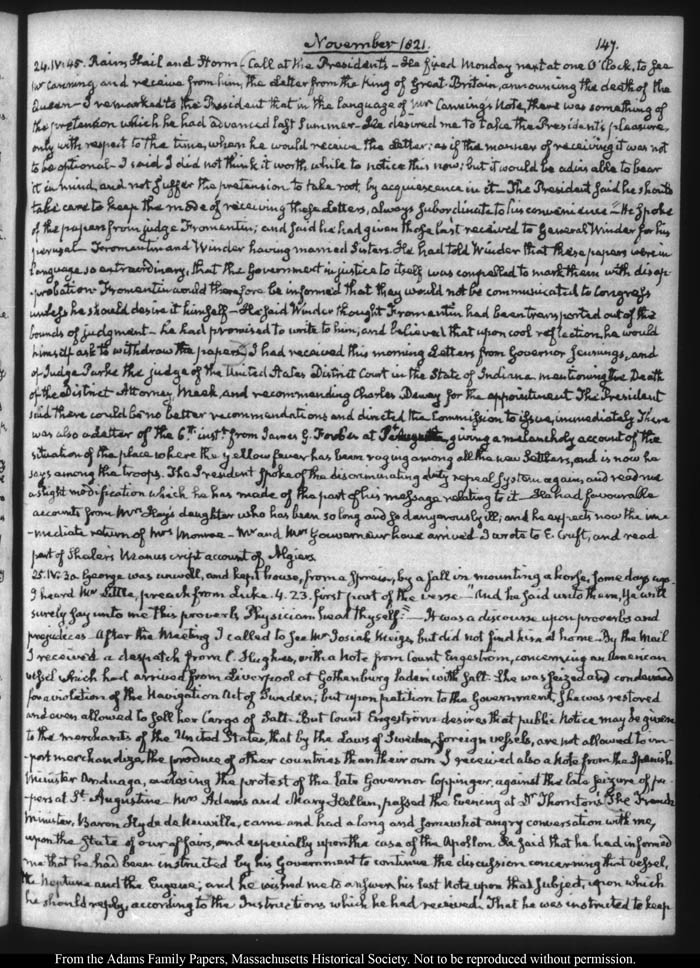 November 1821. 147.
24. IV:45. Rain, Hail and Storm. Call at the President's – He fixed Monday next at one O'Clock, to see
Mr Canning and receive from him, the Letter from the King of Great Britain, announcing the death of the
Queen – I remarked to the President that in the language of Mr Canning's Note, there was something of
the pretension which he had advanced last Summer – He desired me to take the President's pleasure,
only with respect to the time, when he would receive the Letter: as if the manner of receiving it was not
to be optional – I said I did not think it worth while to notice this now; but it would be advisable to bear
it in mind, and not suffer the pretension to take root, by acquiescence in it – The President said he should
take care to keep the mode of receiving these Letters, always subordinate to his convenience – He spoke
of the papers from judge Fromentin; and said he had given those last received to General Winder for his
perusal – Fromentin and Winder having married Sisters. He had told Winder that these papers were in
language so extraordinary, that the Government in justice to itself was compelled to mark them with disap-
-probation. Fromentin would therefore be informed that they would not be communicated to Congress
unless he should desire it himself – He said Winder thought Fromentin had been transported out of the
bounds of judgment – he had promised to write to him; and believed that upon cool reflection, he would
himself ask to withdraw the papers. I had received this morning Letters from Governor Jennings, and
of Judge Parke the judge of the United States District Court in the State of Indiana mentioning the Death
of the District Attorney Meek, and recommending Charles Dewey for the appointment The President
said there could be no better recommendations and directed the Commission to issue, immediately There
was also a letter of the 6th inst. from James G. Forbes at St Augustine, giving a melancholy account of the
situation of the place where the yellow fever has been raging among all the new Settlers, and is now he
says among the troops. The President spoke of the discriminating duty repeal system again, and read me
a slight modification which he has made of the part of his message relating to it – He had favourable
accounts from Mrs Hay's daughter who has been so long and so dangerously ill; and he expects now the im-
-mediate return of Mrs Monroe – Mr and Mrs Gouverneur have arrived. I wrote to E. Cruft, and read
part of Shaler's Manuscript account of Algiers.
25. IV:30. George was unwell, and kept house, from a sprain, by a fall in mounting a horse, some days ago.
I heard Mr Little, preach from Luke. 4.23. first part of the verse "And he said unto them, Ye will
surely say unto me this proverb, Physician heal thyself." – It was a discourse upon proverbs and
prejudices After the Meeting I called to see Mr Josiah Meigs, but did not find him at home – By the Mail
I received a despatch from C. Hughes, with a Note from Count Engeström, concerning an American
vessel which had arrived from Liverpool at Gothenburg laden with Salt. She was seized and condemned
for a violation of the Navigation Act of Sweden; but upon petition to the Government, she was restored
and even allowed to sell her Cargo of Salt. But Count Engeström desires that public notice may be given
to the merchants of the United States, that by the Laws of Sweden, foreign vessels, are not allowed to im-
-port merchandize, the produce of other countries than their own I received also a Note from the Spanish
Minister Anduaga, enclosing the protest of the late Governor Coppinger, against the late seizure of pa-
-pers at St Augustine – Mrs Adams and Mary Hellen, passed the Evening at Dr Thornton's The French
Minister, Baron Hyde de Neuville, came and had a long and somewhat angry conversation with me,
upon the State of our affairs, and especially upon the case of the Apollon. He said that he had informed
me that he had been instructed by his Government to continue the discussion concerning that vessel,
the Neptune and the Eugene; and he wished me to answer his last Note upon that subject, upon which
he should reply, according to the Instructions which he had received. That he was instructed to keep
From the Adams Family Papers, Massachusetts Historical Society. Not to be reproduced without permission.